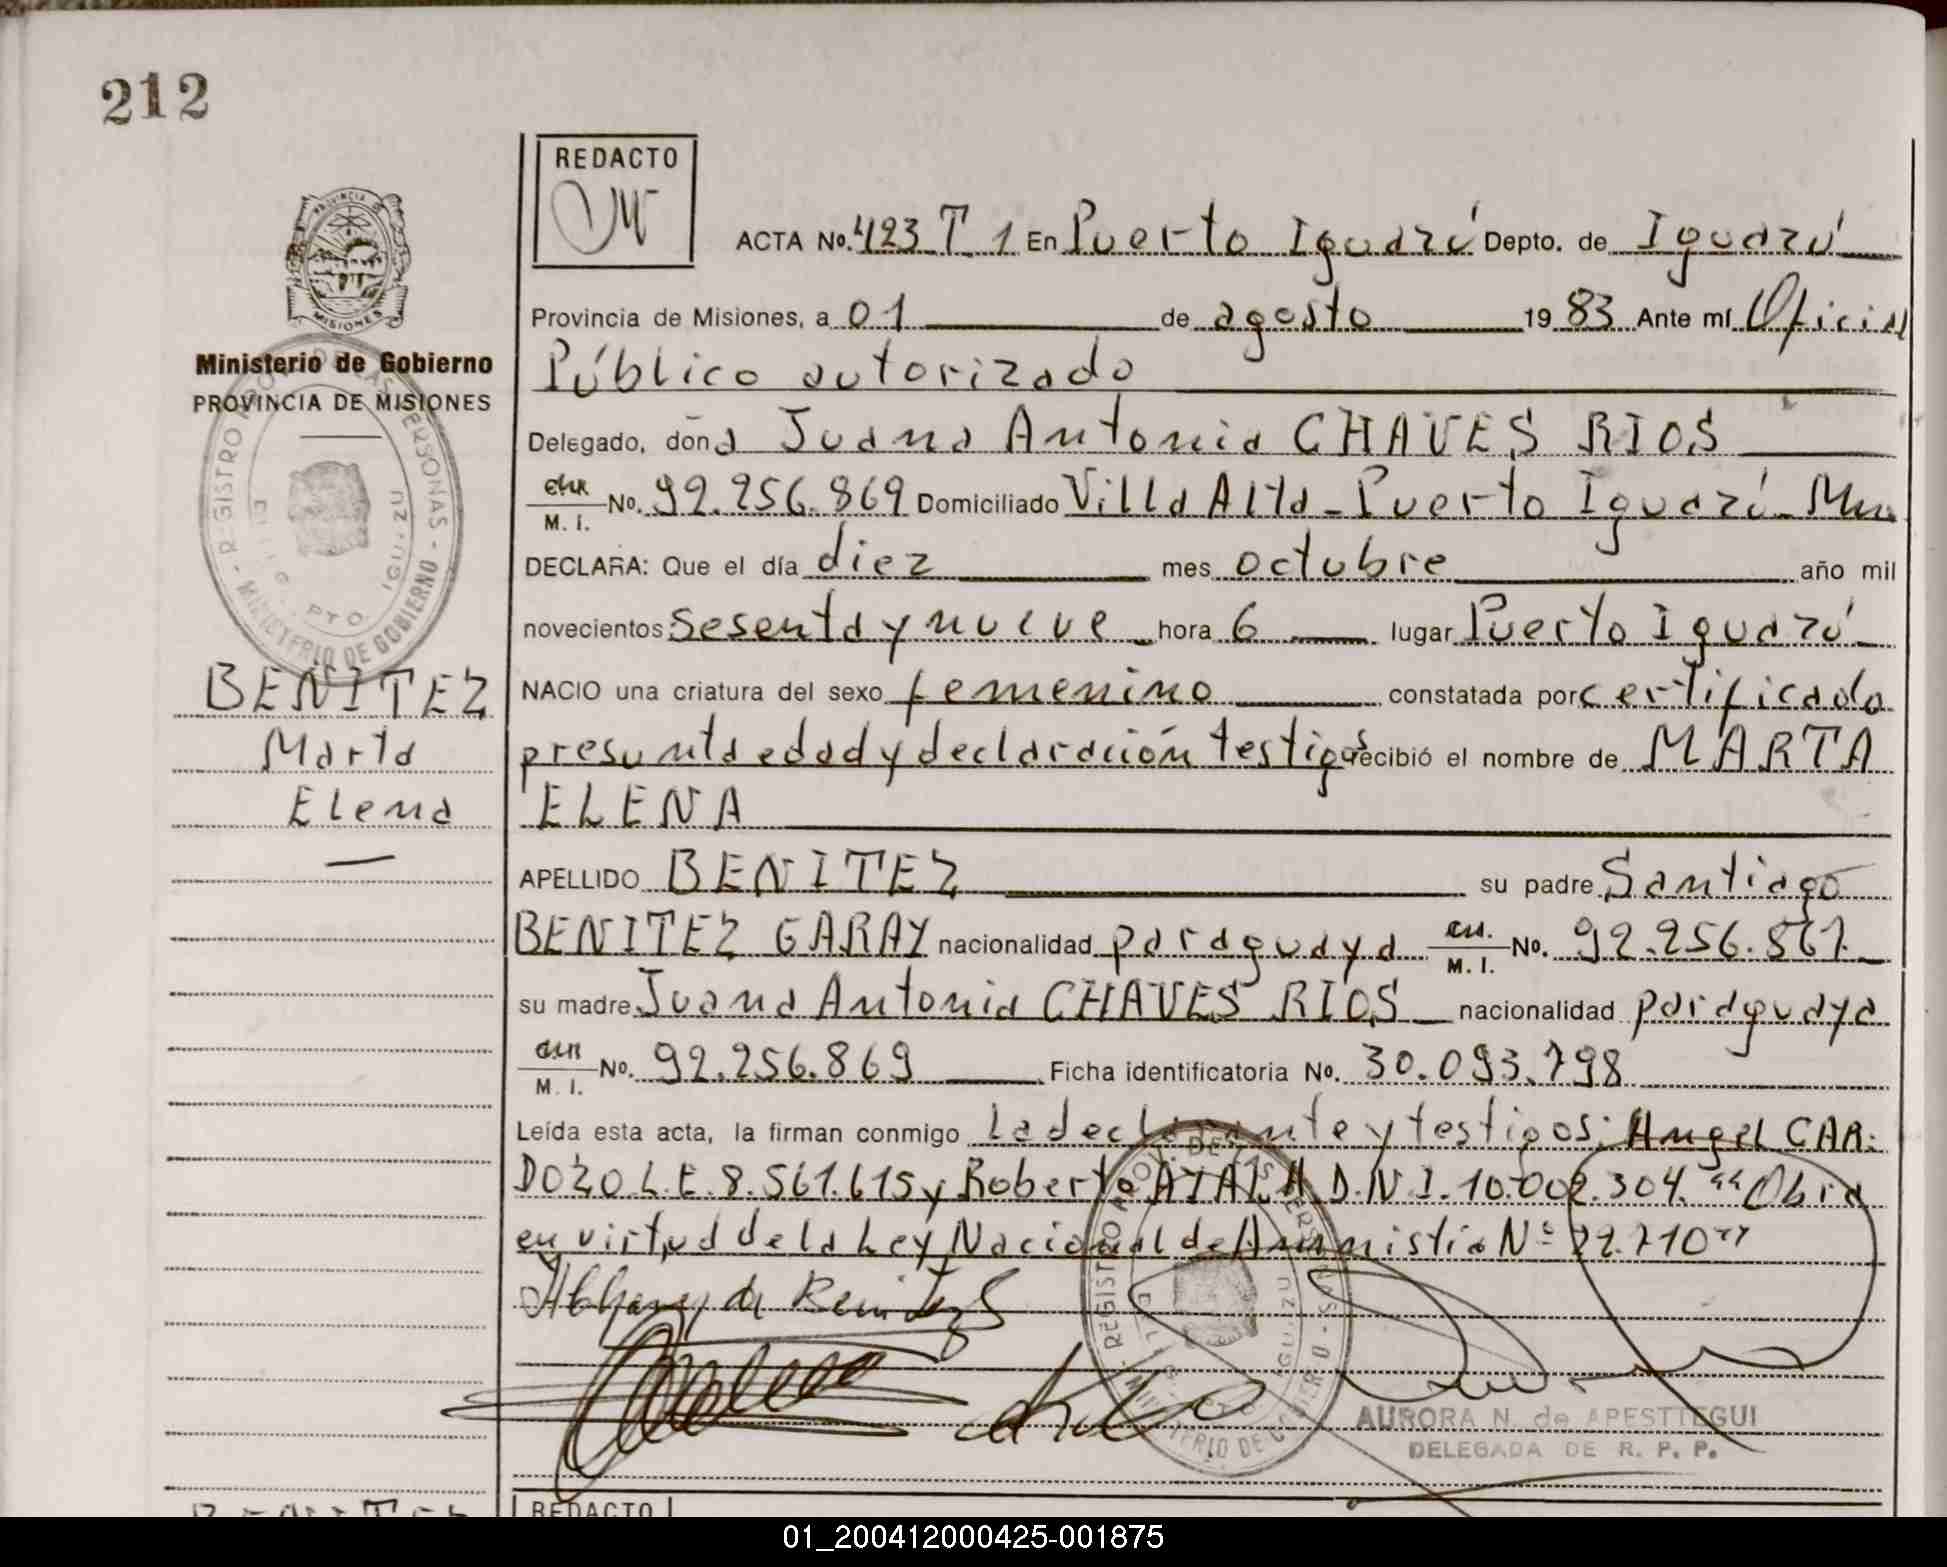 212
REDACTO
ACTA No. 423 T 1 En Puerto Iguazú Depto. de Iguazú
Provincia de Misiones, a 01 de agosto 1983 Ante mí Oficial
Público autorizado
Delegado, doña Juana Antonia CHAVES RIOS
No. 92.256.869 Domiciliado Villa Alta - Puerto Iguazú - Mnes
M. I.
DECLARA: Que el día diez mes octubre año mil
novecientos sesenta y nueve hora 6 lugar Puerto Iguazú
NACIO una criatura del sexo femenino constatada por certificado
presunta edad y declaración testigos recibió el nombre de MARTA
ELENA
APELLIDO BENITEZ su padre Santiago
BENITEZ GARAY nacionalidad paraguaya No. 92.256.867
M. I.
su madre Juana Antonia CHAVES RIOS nacionalidad paraguaya
No. 92.256.869 Ficha identificatoria No. 30.093.798
M. I.
Leída esta acta, la firman conmigo la declarante y testigos: Angel CAR-
DOZO L.E. 8.561.615 y Roberto AYALA D.N.I. 10.002.304. "Obra
en virtud de la Ley Nacional de Amnistía Nº 22.710"
AURORA N. de APESTTEGUI
DELEGADA DE R. P. P.
PROVINCIA DE
MISIONES
Ministerio de Gobierno
PROVINCIA DE MISIONES
REGISTRO PROV. DE LAS PERSONAS - MINISTERIO DE GOBIERNO
PTO IGUAZU
BENITEZ
Marta
Elena
BENITEZ
REDACTO
01_200412000425-001875